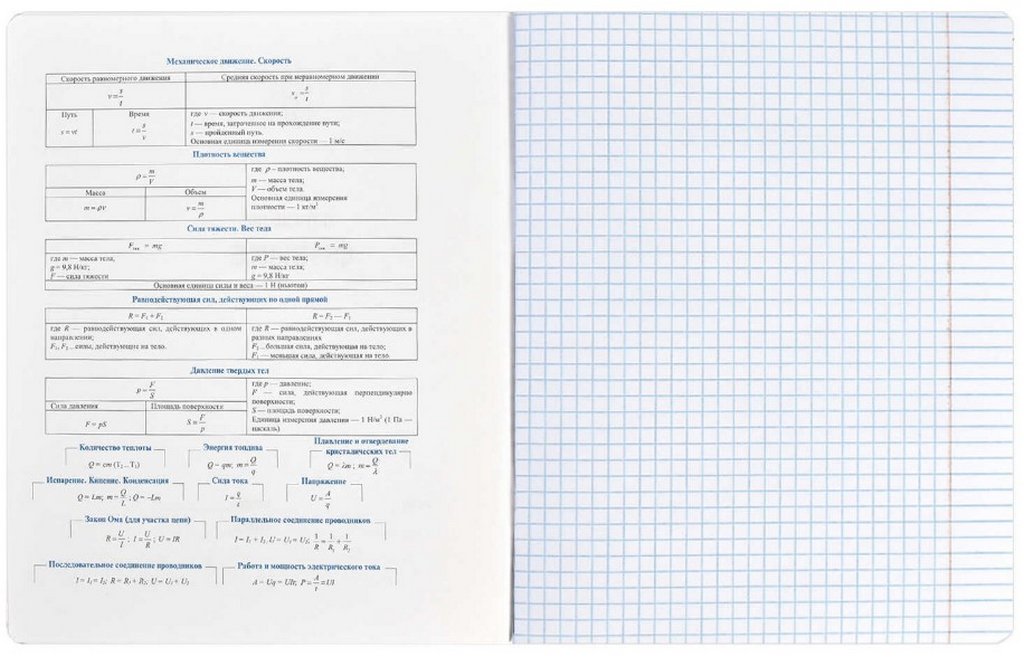 Механическое движение. Скорость
Скорость равномерного движения
Средняя скорость при неравномерном движении
v = s/t
Путь
Время
s = vt
t = s/v
где v — скорость движения;
t — время, затраченное на прохождение пути;
s — пройденный путь.
Основная единица измерения скорости — 1 м/с
Плотность вещества
ρ = m/V
Масса
Объем
m = ρV
v = m/ρ
где ρ – плотность вещества;
m — масса тела;
V — объем тела.
Основная единица измерения
плотности — 1 кг/м³
Сила тяжести. Вес тела
= mg
= mg
где m — масса тела,
g = 9,8 Н/кг;
F — сила тяжести
где P — вес тела;
m — масса тела;
g = 9,8 Н/кг
Основная единица силы и веса — 1 Н (ньютон)
Равнодействующая сил, действующих по одной прямой
R = F₁ + F₂
R = F₂ — F₁
где R — равнодействующая сил, действующих в одном
направлении;
F₁, F₂ .. силы, действующие на тело.
где R — равнодействующая сил, действующих в
разных направлениях
F₂ .. большая сила, действующая на тело;
F₁ — меньшая сила, действующая на тело.
Давление твердых тел
p = F/S
Сила давления
Площадь поверхности
F = pS
S = F/p
где p — давление;
F — сила, действующая перпендикулярно
поверхности;
S — площадь поверхности;
Единица измерения давления — 1 Н/м² (1 Па —
паскаль)
Количество теплоты
Энергия топлива
Плавление и отвердевание
кристаллических тел
Q = cm (T₂ .. T₁)
Q = qm; m = Q/q
Q = λm ; m = Q/λ
Испарение. Кипение. Конденсация
Сила тока
Напряжение
Q = Lm; m = Q/L ; Q = –Lm
I = q/t
U = A/q
Закон Ома (для участка цепи)
Параллельное соединение проводников
R = U/I ; I = U/R ; U = IR
I = I₁ + I₂, U = U₁ = U₂; 1/R = 1/R₁ + 1/R₂
Последовательное соединение проводников
Работа и мощность электрического тока
I = I₁ = I₂; R = R₁ + R₂, U = U₁ + U₂
A = Uq = UIt; P = A/t = UI